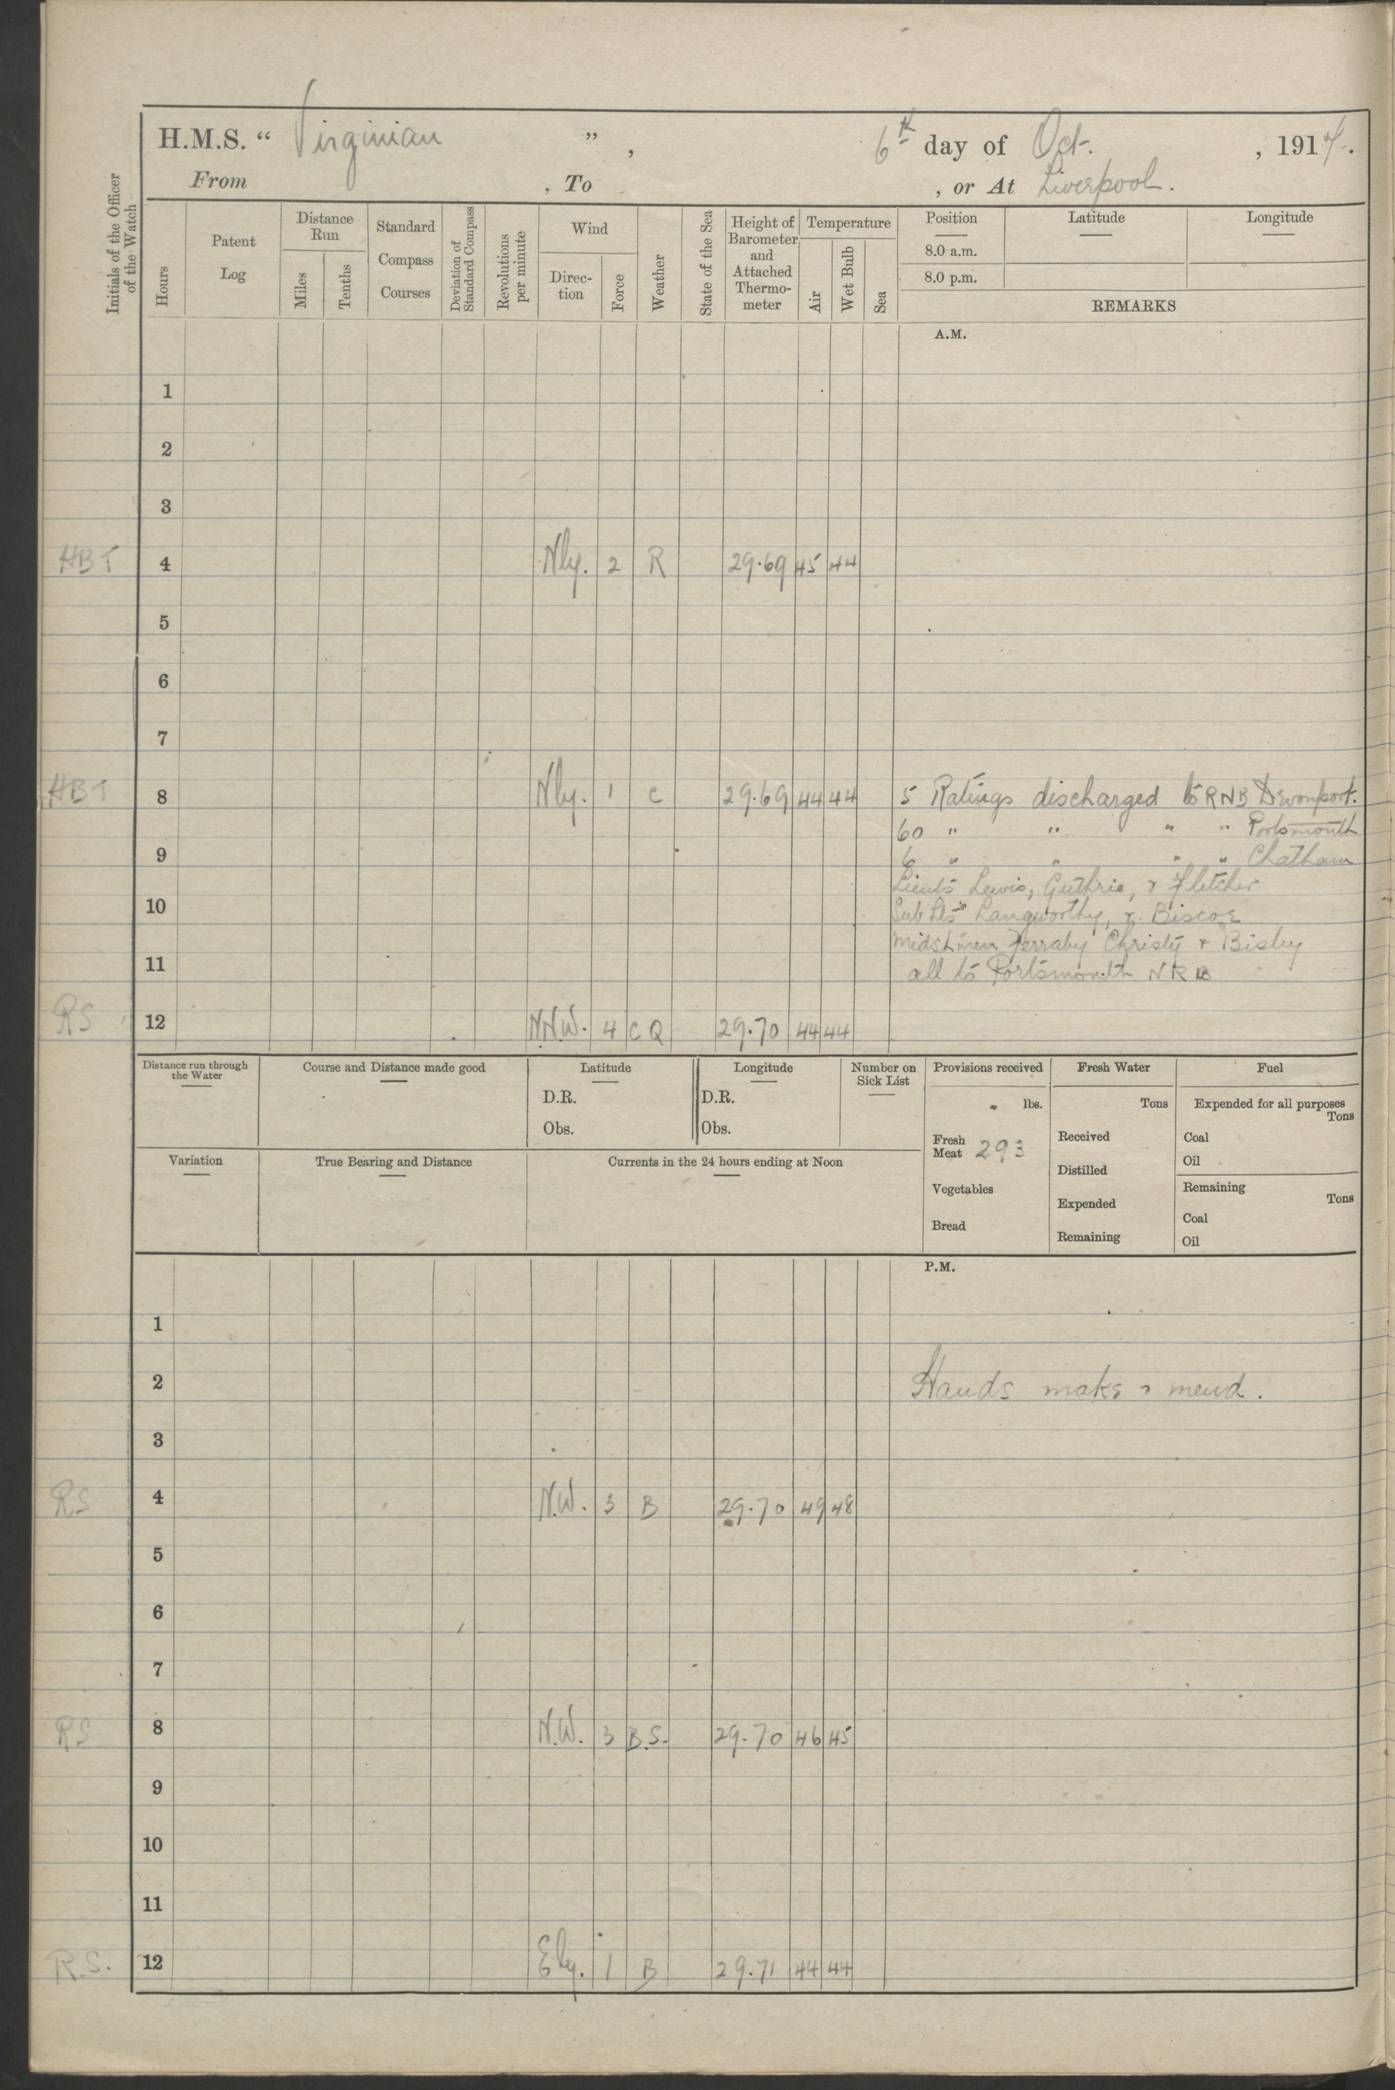 H.M.S. " Virginian ", 6th day of Oct. , 1917.
From , To , or At Liverpool.
Initials of the Officer of the Watch
Hours
Patent Log
Distance Run
Miles
Tenths
Standard Compass Courses
Deviation of Standard Compass
Revolutions per minute
Wind
Direc-tion
Force
Weather
State of the Sea
Height of Barometer and Attached Thermo-meter
Temperature
Air
Wet Bulb
Sea
Position Latitude Longitude
8.0 a.m.
8.0 p.m.
REMARKS
A.M.
1
2
3
HBT 4 Nly. 2 R 29.69 45 44
5
6
7
HBT 8 Nly. 1 C 29.69 44 44 5 Ratings discharged to RNB Devonport.
60 " " " " Portsmouth
9 6 " " " " Chatham
Lieuts Lewis, Guthrie, & Fletcher
10 Sub Lts Langworthy, & Biscoe
Midshmen Ferraby Christy & Bisley
11 all to Portsmouth NRB
RS 12 NNW. 4 C Q 29.70 44 44
Distance run through the Water
Course and Distance made good
Latitude
D.R.
Obs.
Longitude
D.R.
Obs.
Number on Sick List
Provisions received
lbs.
Fresh Meat 293
Vegetables
Bread
Fresh Water
Tons
Received
Distilled
Expended
Remaining
Fuel
Expended for all purposes
Tons
Coal
Oil
Remaining
Tons
Coal
Oil
Variation
True Bearing and Distance
Currents in the 24 hours ending at Noon
P.M.
1
2 Hands make & mend.
3
RS 4 N.W. 3 B 29.70 49 48
5
6
7
RS 8 N.W. 3 B.S. 29.70 46 45
9
10
11
R.S. 12 Ely. 1 B 29.71 44 44